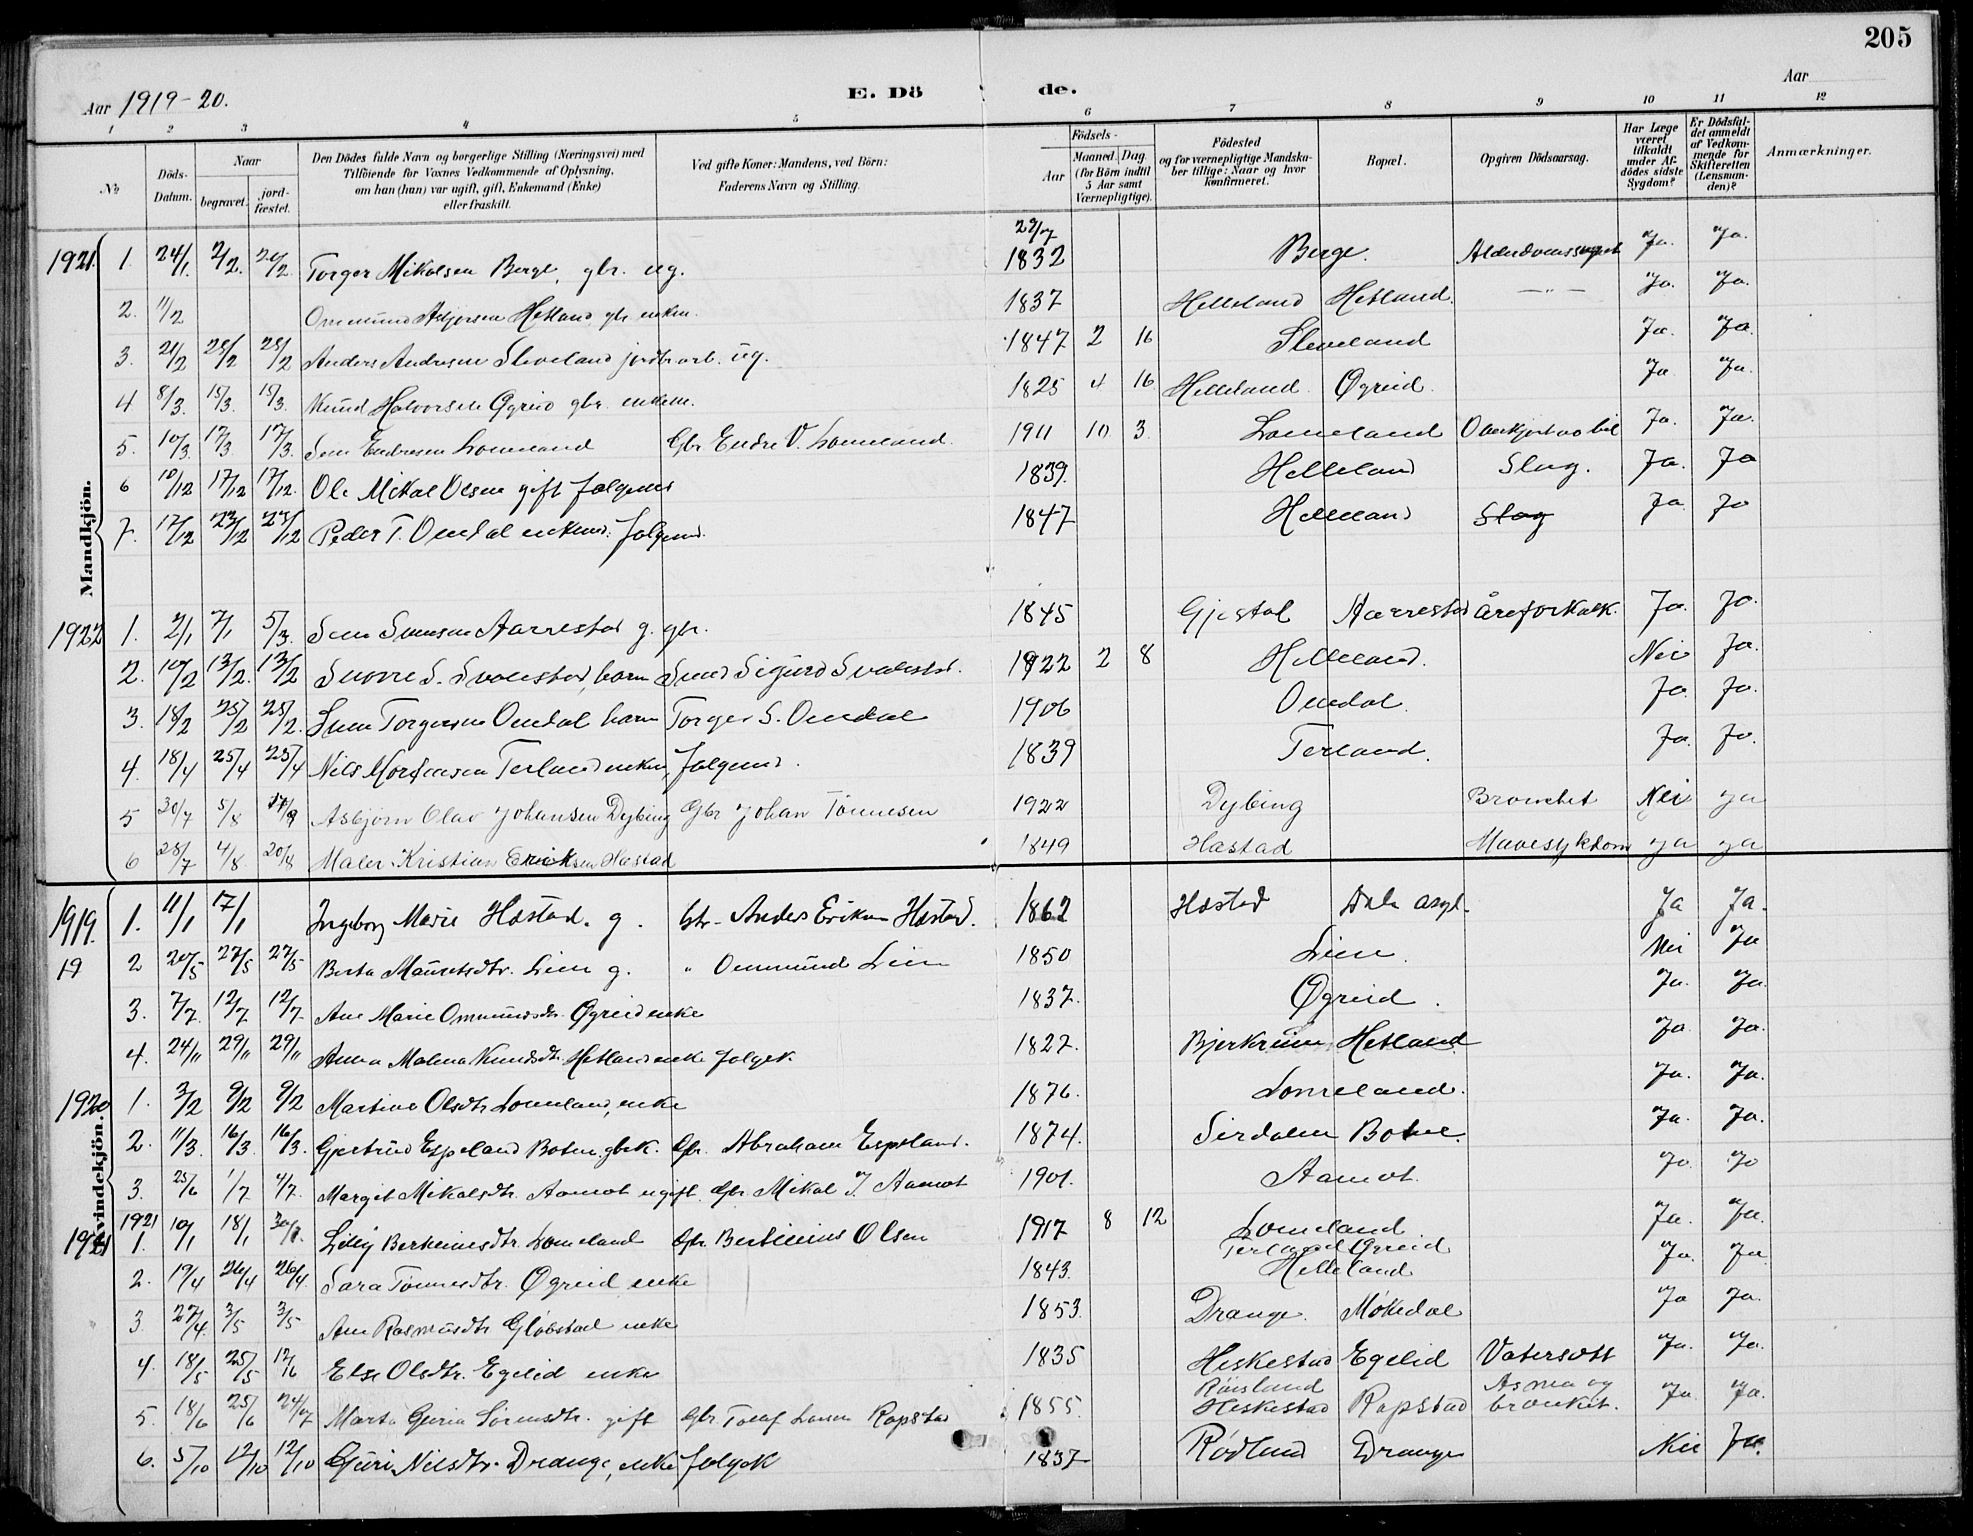 205
Aar 1919-20.
E. Dö de.
Aar
1 2 3 4 5 6 7 8 9 10 11 12
No
Döds-Datum.
Naar
begravet.
jord-fæstet.
Den Dödes fulde Navn og borgerlige Stilling (Næringsvei) med Tilföiende for Voxnes Vedkommende af Oplysning, om han (hun) var ugift, gift, Enkemand (Enke) eller fraskilt.
Ved gifte Koner: Mandens, ved Börn: Faderens Navn og Stilling.
Födsels-
Aar
Maaned. Dag
(for Börn indtil 5 Aar samt Værnepligtige).
Födested og for værnepligtige Mandskaber tillige: Naar og hvor konfirmeret.
Bopæl.
Opgiven Dödsaarsag.
Har Læge været tilkaldt under Afdödes sidste Sygdom?
Er Dödsfaldet anmeldt af Vedkommende for Skifteretten (Lensmanden)?
Anmærkninger.
Mandkjön.
1921. 1. 24/1 2/2. 20/2 Torger Mikalsen Berge, gbr. ug. 29/7 1832 Berge. Ja. Ja.
2. 11/2 Ommund Asbjørsen Hetland, gbr. enkem. 1837 Helleland Hetland. —"— Ja. Ja.
3. 21/2 28/2 28/2 Anders Andersen Sleveland jordbr.arb. ug. 1847 2 16 Sleveland Ja. Ja.
4 8/3. 15/3. 15/3. Knud Halvorsen Øgreid gbr. enkem. 1825 4 16 Helleland Øgreid. Ja Ja.
5. 10/3. 17/3 17/3. Sven Endresen Lomeland Gbr. Endre V. Lomeland. 1911 10 3. Lomeland Ja. Ja.
6 10/12 17/12 17/12. Ole Mikal Olsen gift folgemd 1839. Helleland Slag. Ja. Ja
7. 17/12 23/12 23/12 Peder T. Omdal enkem. folgemd. 1847 Helleland Slag Ja. Ja
1922 1. 2/1 7/1 5/3. Sven Svensen Aarrestad g. gbr. 1845 Gjestal Aarrestad Åreforkalk. Ja. Ja.
2. 10/2 13/2. 13/2 Snorre S. Svalestad, barn Svend Sigurd Svalestd. 1922 2 8 Helleland. Nei Ja.
3. 18/2 25/2 25/2. Sven Torgersen Omdal barn Torger S. Omdal 1906 Omdal. Ja. Ja.
4. 18/4 25/4 25/4 Nils Mortensen Terland enkem, folgemd. 1839 Terland. Ja. Ja.
5 30/7 5/8 17/9 Asbjørn Olav Johansen Dybing Gbr Johan Tönnesen 1922 Dybing Bronchit Nei ja
6 28/7 4/8. 20/8 Maler Kristian Eriksen Hæstad 1849 Hæstad Mavesykdom ja ja
Kvindekjön.
1919. 1. 11/1 17/1 Ingeborg Marie Hæstad. g. Gbr. Anders Eriksen Hæstad. 1862 Hæstad Dale asyl. Ja Ja.
19 2 20/5 27/5 27/5 Berta Mauritsdtr. Lien g. " Ommund Lien 1850 Lien. Nei Ja
3. 7/7. 12/7 12/7. Ane Marie Ommundsdtr. Øgreid enke 1837. Øgreid. Ja. Ja.
4. 24/11 29/11 29/11 Anna Malena Knudsdtr. Hetland enke folgek. 1827. Bjerkreim Hetland Ja. Ja.
1920 1. 3/2 9/2 9/2 Martine Olsdtr Lomeland, enke 1876. Lomeland. Ja. Ja.
2. 11/3. 16/3. 16/3. Gjertrud Espeland Boten, gbrk. Gbr. Abraham Espeland. 1874. Sirdalen Botne. Ja. Ja.
3. 25/6 1/7 4/7. Margit Mikalsdtr. Aamot ugift. Gbr. Mikal J. Aamot 1901. Aamot. Ja. Ja
1921 1921 1. 10/1 18/1 Lilly Bertinusdtr. Lomeland Gbr. Bertinius Olsen 1917 8 12 Lomeland Ja. Ja.
2. 19/4 26/4 26/4. Sara Tönnesdtr. Øgreid enke 1843. Terland Øgreid Helleland Ja. Ja
3 27/4. 3/5 3/5 Ane Rasmusdtr Gløbstad enke 1853. Drange. Møkedal Ja Ja.
4. 18/5 25/5 Else Olsdtr. Egelid enke 1835 Heskestad Egelid Vatersott Ja. Ja.
5. 18/6 25/6 Marta Guria Sörensdtr. gift Gbr. Tolaf Larsen Rapstad 1855. Heskestad Rapstad Asma og bronkit. Ja. Ja.
6. 5/10 12/10 12/10 Guri Nilsdtr. Drange, enke folgek 1837 Rødland Drange Nei Ja.